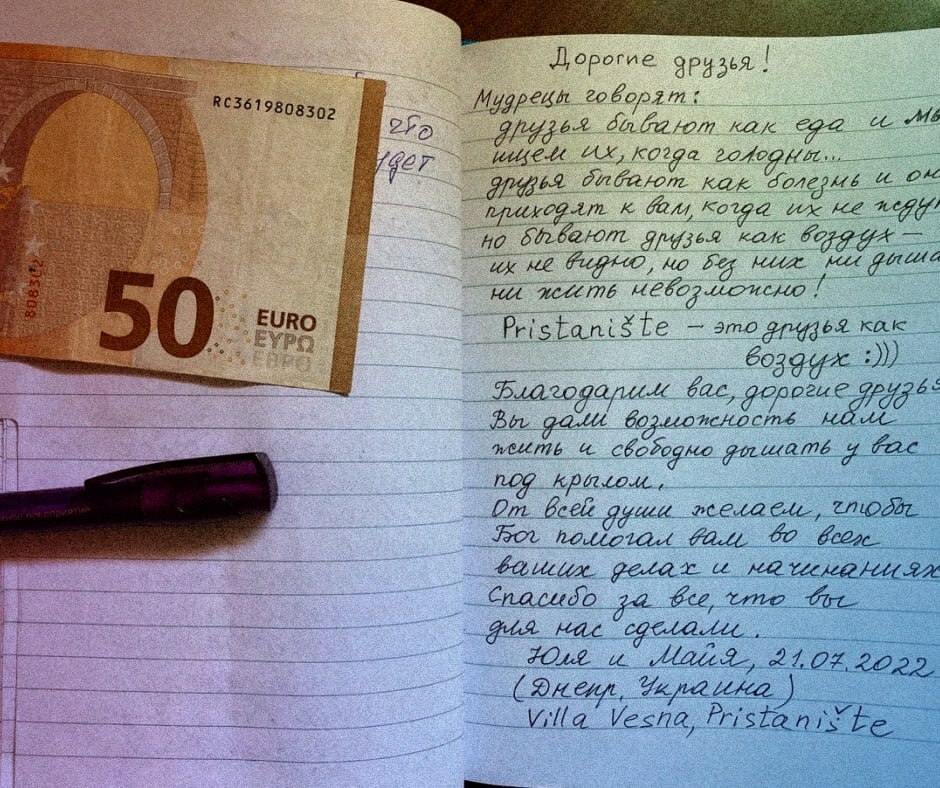 RC3619808302
808302
50
EURO
ΕΥΡΩ
ЕВРО
что
Дорогие друзья!
Мудрецы говорят:
друзья бывают как еда и мы
ищем их, когда голодны...
друзья бывают как болезнь и он
приходят к вам, когда их не ждут
но бывают друзья как воздух –
их не видно, но без них ни дыша
ни жить невозможно!
Pristanište – это друзья как
воздух :)))
Благодарим вас, дорогие друзья
Вы дали возможность нам
жить и свободно дышать у вас
под крылом.
От всей души желаем, чтобы
Бог помогал вам во всех
ваших делах и начинаниях
Спасибо за все, что вы
для нас сделали.
Юля и Майя, 21.07.2022
(Днепр, Украина)
Villa Vesna, Pristanište